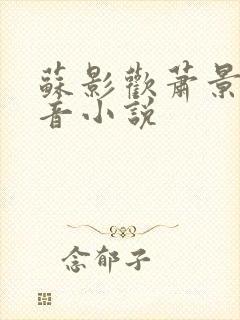 蘇影歡蕭景
音小說
念郁子